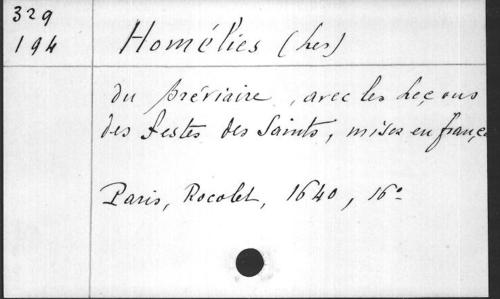 329
194
Homélies (Les)
du bréviaire, avec les Leçons
des Festes des Saints, mises en françe
Paris, Rocolet, 1640, 16°